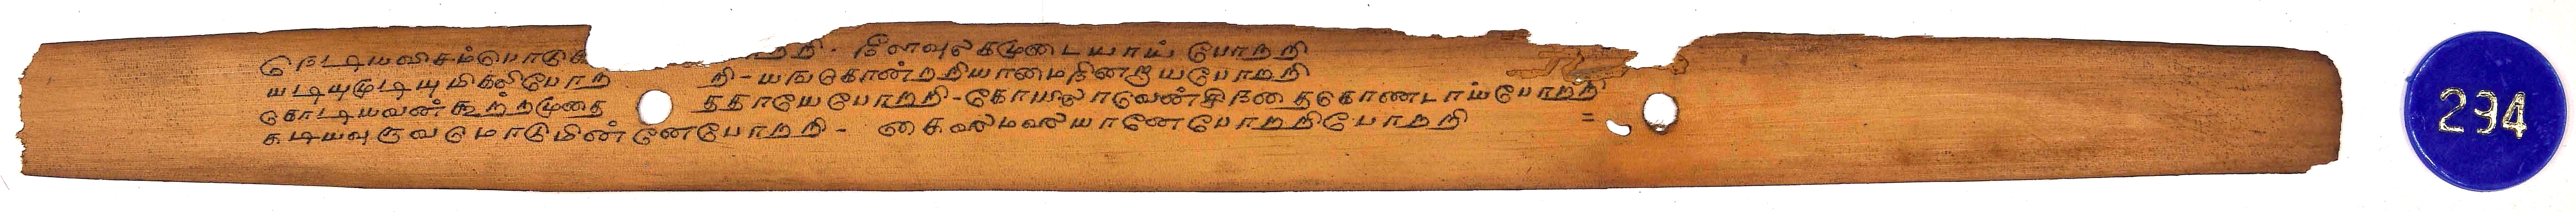 நெடியவிசும்பொடுக ற்றி - நீளவுலகமுடையாய் போற்றி
யடியுமுடியுமிகலிபோற றி - யங்கொன்றறியாமைநின்றாயபோற்றி
கொடியவன்கூற்றமுதை ததாயேபோற்றி - கோயிலாவென்சிந்தைகொண்டாய்போற்றி
கடியவுருவமொடுமின்னேபோற்றி - கைலைமலையானேபோற்றிபோற்றி =
294